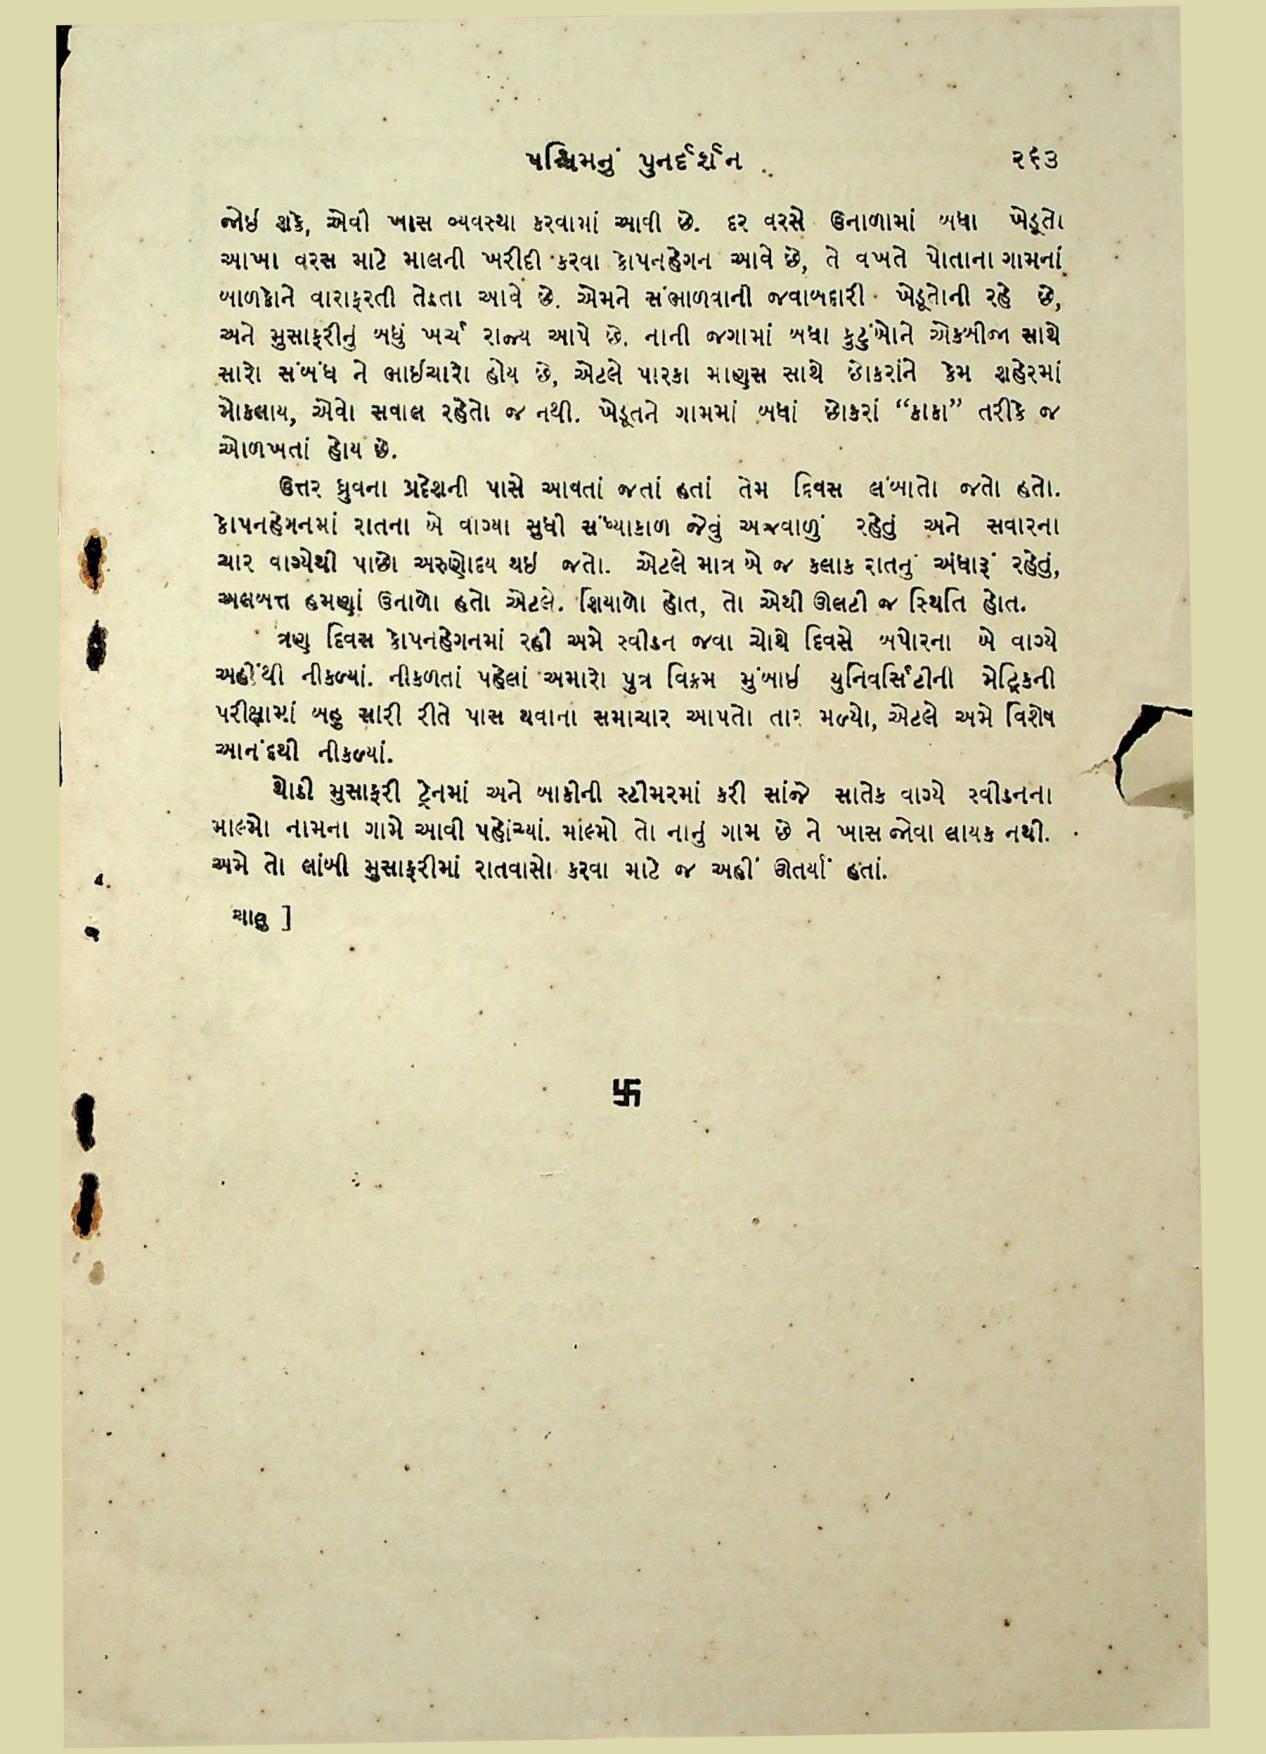 પશ્ચિમનું પુનર્દર્શન
૨૬૩
જોઈ શકે, એવી ખાસ વ્યવસ્થા કરવામાં આવી છે. દર વરસે ઉનાળામાં બધા ખેડૂતો
આખા વરસ માટે માલની ખરીદી કરવા કોપનહેગન આવે છે, તે વખતે પોતાના ગામનાં
બાળકોને વારાફરતી તેડતા આવે છે. એમને સંભાળવાની જવાબદારી ખેડૂતોની રહે છે,
અને મુસાફરીનું બધું ખર્ચ રાજ્ય આપે છે. નાની જગામાં બધા કુટુંબોને એકબીજા સાથે
સારો સંબંધ ને ભાઈચારો હોય છે, એટલે પારકા માણસ સાથે છોકરાંને કેમ શહેરમાં
મોકલાય, એવો સવાલ રહેતો જ નથી. ખેડૂતને ગામમાં બધાં છોકરાં “કાકા” તરીકે જ
ઓળખતાં હોય છે.
ઉત્તર ધ્રુવના પ્રદેશની પાસે આવતાં જતાં હતાં તેમ દિવસ લંબાતો જતો હતો.
કોપનહેગનમાં રાતના બે વાગ્યા સુધી સંધ્યાકાળ જેવું અજવાળું રહેતું અને સવારના
ચાર વાગ્યેથી પાછો અરુણોદય થઈ જતો. એટલે માત્ર બે જ કલાક રાતનું અંધારૂં રહેતું,
અલબત્ત હમણાં ઉનાળો હતો એટલે. શિયાળો હોત, તો એથી ઊલટી જ સ્થિતિ હોત.
ત્રણ દિવસ કોપનહેગનમાં રહી અમે સ્વીડન જવા ચોથે દિવસે બપોરના બે વાગ્યે
અહીંથી નીકળ્યાં. નીકળતાં પહેલાં અમારો પુત્ર વિક્રમ મુંબાઈ યુનિવર્સિટીની મેટ્રિકની
પરીક્ષામાં બહુ સારી રીતે પાસ થવાના સમાચાર આપતો તાર મળ્યો, એટલે અમે વિશેષ
આનંદથી નીકળ્યાં.
થોડી મુસાફરી ટ્રેનમાં અને બાકીની સ્ટીમરમાં કરી સાંજે સાતેક વાગ્યે સ્વીડનના
માલ્મો નામના ગામે આવી પહોંચ્યાં. માલ્મો તો નાનું ગામ છે ને ખાસ જોવા લાયક નથી.
અમે તો લાંબી મુસાફરીમાં રાતવાસો કરવા માટે જ અહીં ઊતર્યાં હતાં.
ચાલુ ]
卐